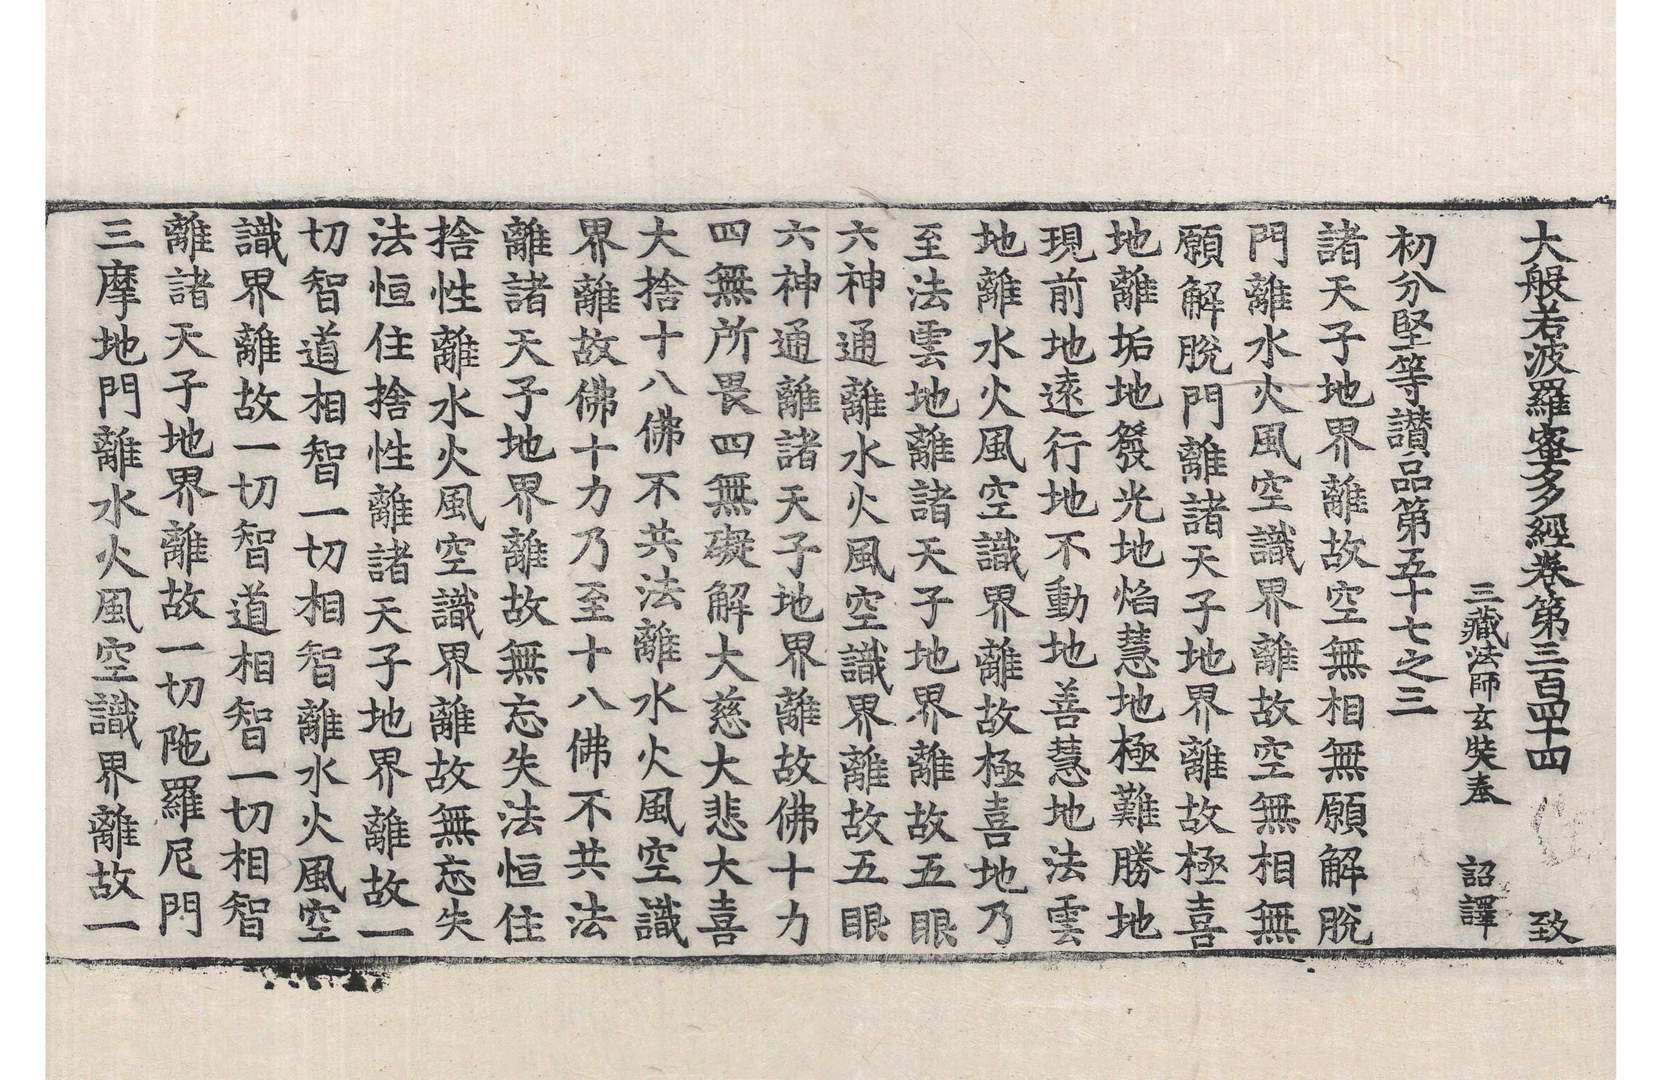 大般若波羅蜜多經卷第三百四十四 致
三藏法師玄奘奉 詔譯
初分堅等讃品第五十七之三
諸天子地界離故空無相無願解脫
門離水火風空識界離故空無相無
願解脫門離諸天子地界離故極喜
地離垢地發光地焰慧地極難勝地
現前地遠行地不動地善慧地法雲
地離水火風空識界離故極喜地乃
至法雲地離諸天子地界離故五眼
六神通離水火風空識界離故五眼
六神通離諸天子地界離故佛十力
四無所畏四無礙解大慈大悲大喜
大捨十八佛不共法離水火風空識
界離故佛十力乃至十八佛不共法
離諸天子地界離故無忘失法恒住
捨性離水火風空識界離故無忘失
法恒住捨性離諸天子地界離故一
切智道相智一切相智離水火風空
識界離故一切智道相智一切相智
離諸天子地界離故一切陁羅尼門
三摩地門離水火風空識界離故一